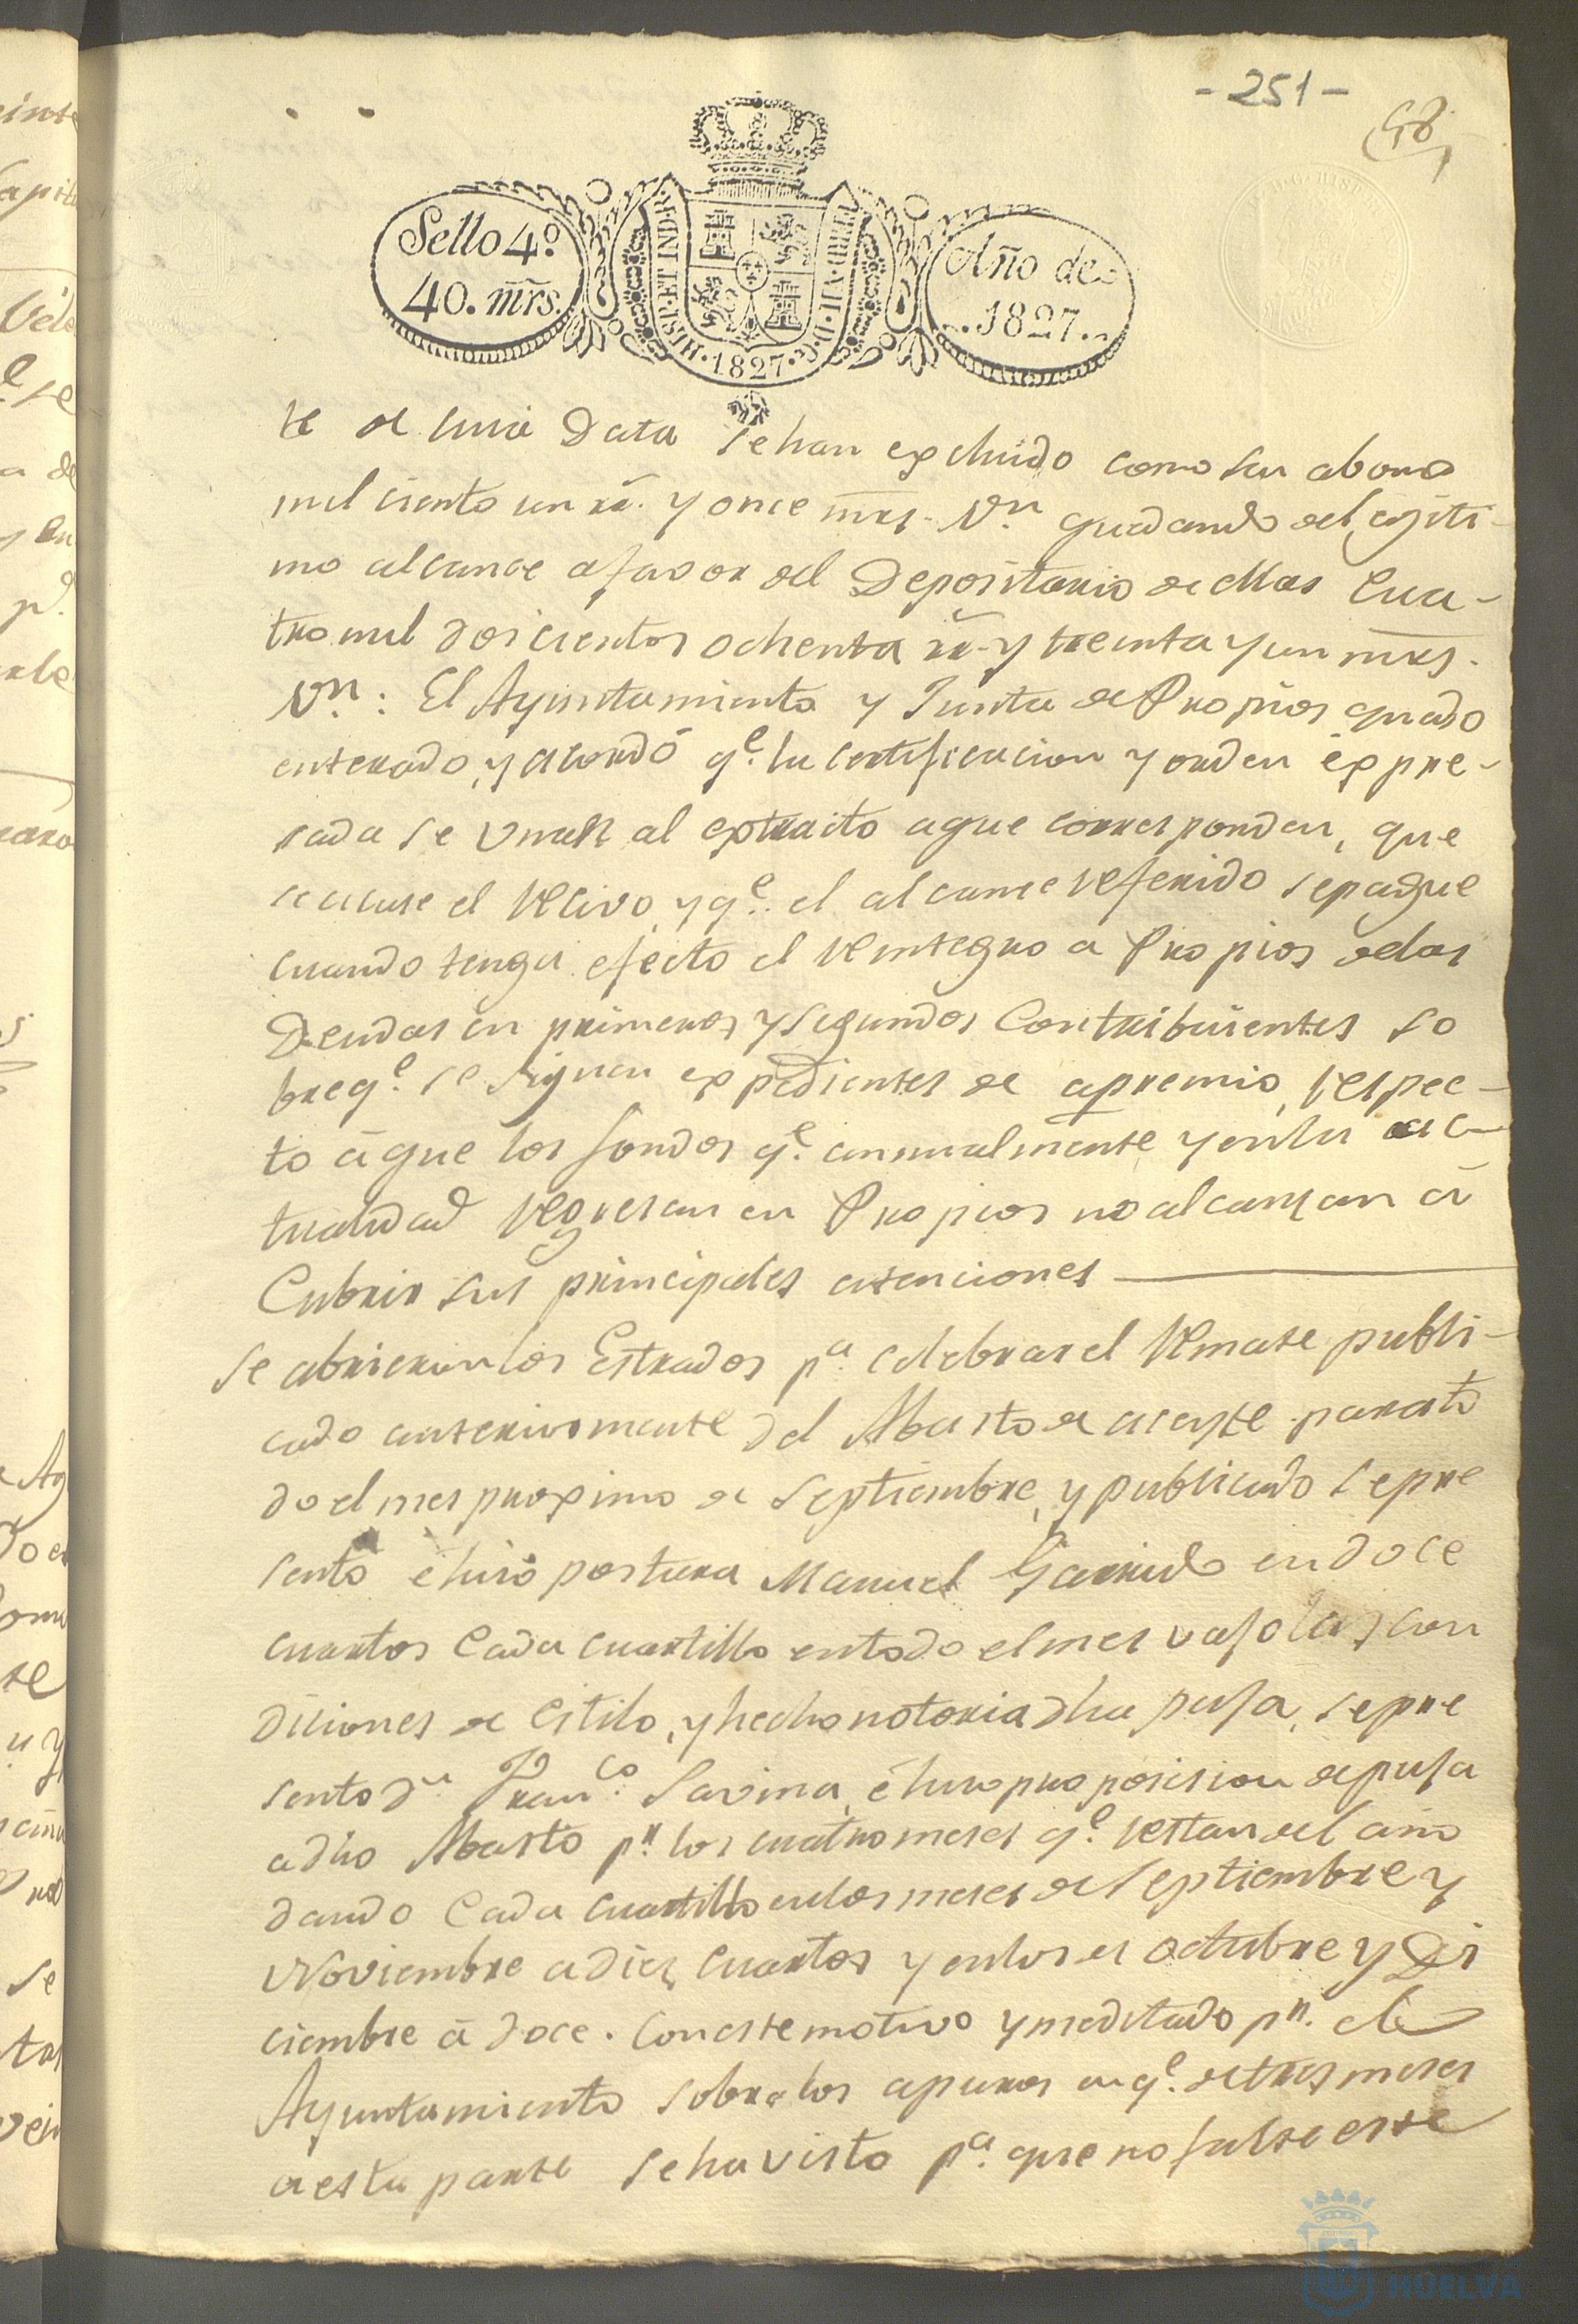 - 251 -
58
Sello 4º
40. mrs.
HISP. ET IND. R.
1827
Año de
1827.
te de cuia Data se han excluido como sin abono
mil ciento un rr. y once mrs. Vn. quedando de lejiti-
mo alcance a favor del Depositario de ellas Cua-
tro mil doscientos ochenta rr. y treinta y un mrs.
Vn.: El Ayuntamiento y Junta de Propios quedo
enterado, y acordó qe. la certificacion y orden expre-
sada se unan al extracto a que corresponden, que
se acuse el Recivo, y qe. el alcance Referido se pague
cuando tenga efecto el Reintegro a Propios de las
Deudas en primeros y segundos Contribuientes so
bre qe. se siguen expedientes de apremio, Respec-
to á que los fondos qe. anualmente y en la ac-
tualidad Regresan en Propios no alcanzan á
Cubrir sus principales atenciones
Se abrieron los Estrados pa. celebrar el Remate publi-
cado anteriormente del Abasto de aceyte para to
do el mes proximo de Septiembre, y publicado se pre
sentó é hizo postura Manuel Garrido en doce
cuartos Cada cuartillo en todo el mes vajo las con
diciones de estilo, y hecho notoria dha puja, se pre
sento Dn. Franco. Savina, é hizo proposicion de puja
a dho Abasto pr. los cuatro meses qe. Restan del año
dando Cada cuartillo en los meses de Septiembre y
Noviembre a diez cuartos y en los de Octubre y Di
ciembre á doce. Con este motivo y meditado pr. el
Ayuntamiento sobre los apuros en qe. de tres meses
a esta parte se ha visto pa. que no falte este
HUELVA